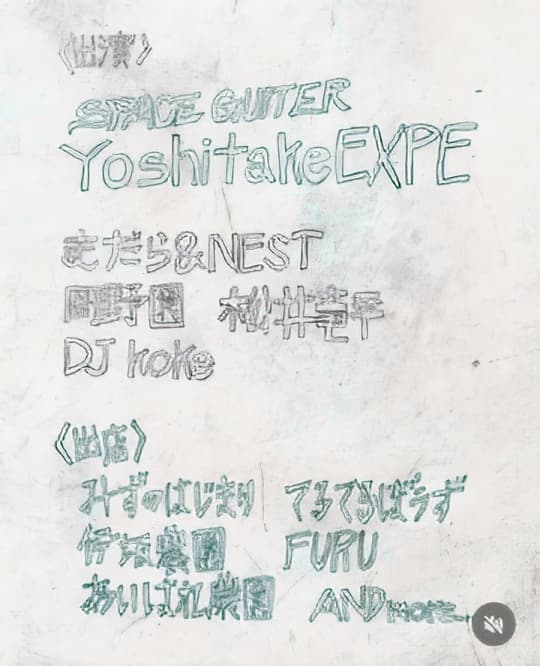 〈出演〉
SPACE GUITER
YoshitakeEXPE
むだら&NEST
岡野園 松井壱平
DJ koke
〈出店〉
みずのはじまり てるてるぼうず
伊東農園 FURU
あいばれ農園 AND more...